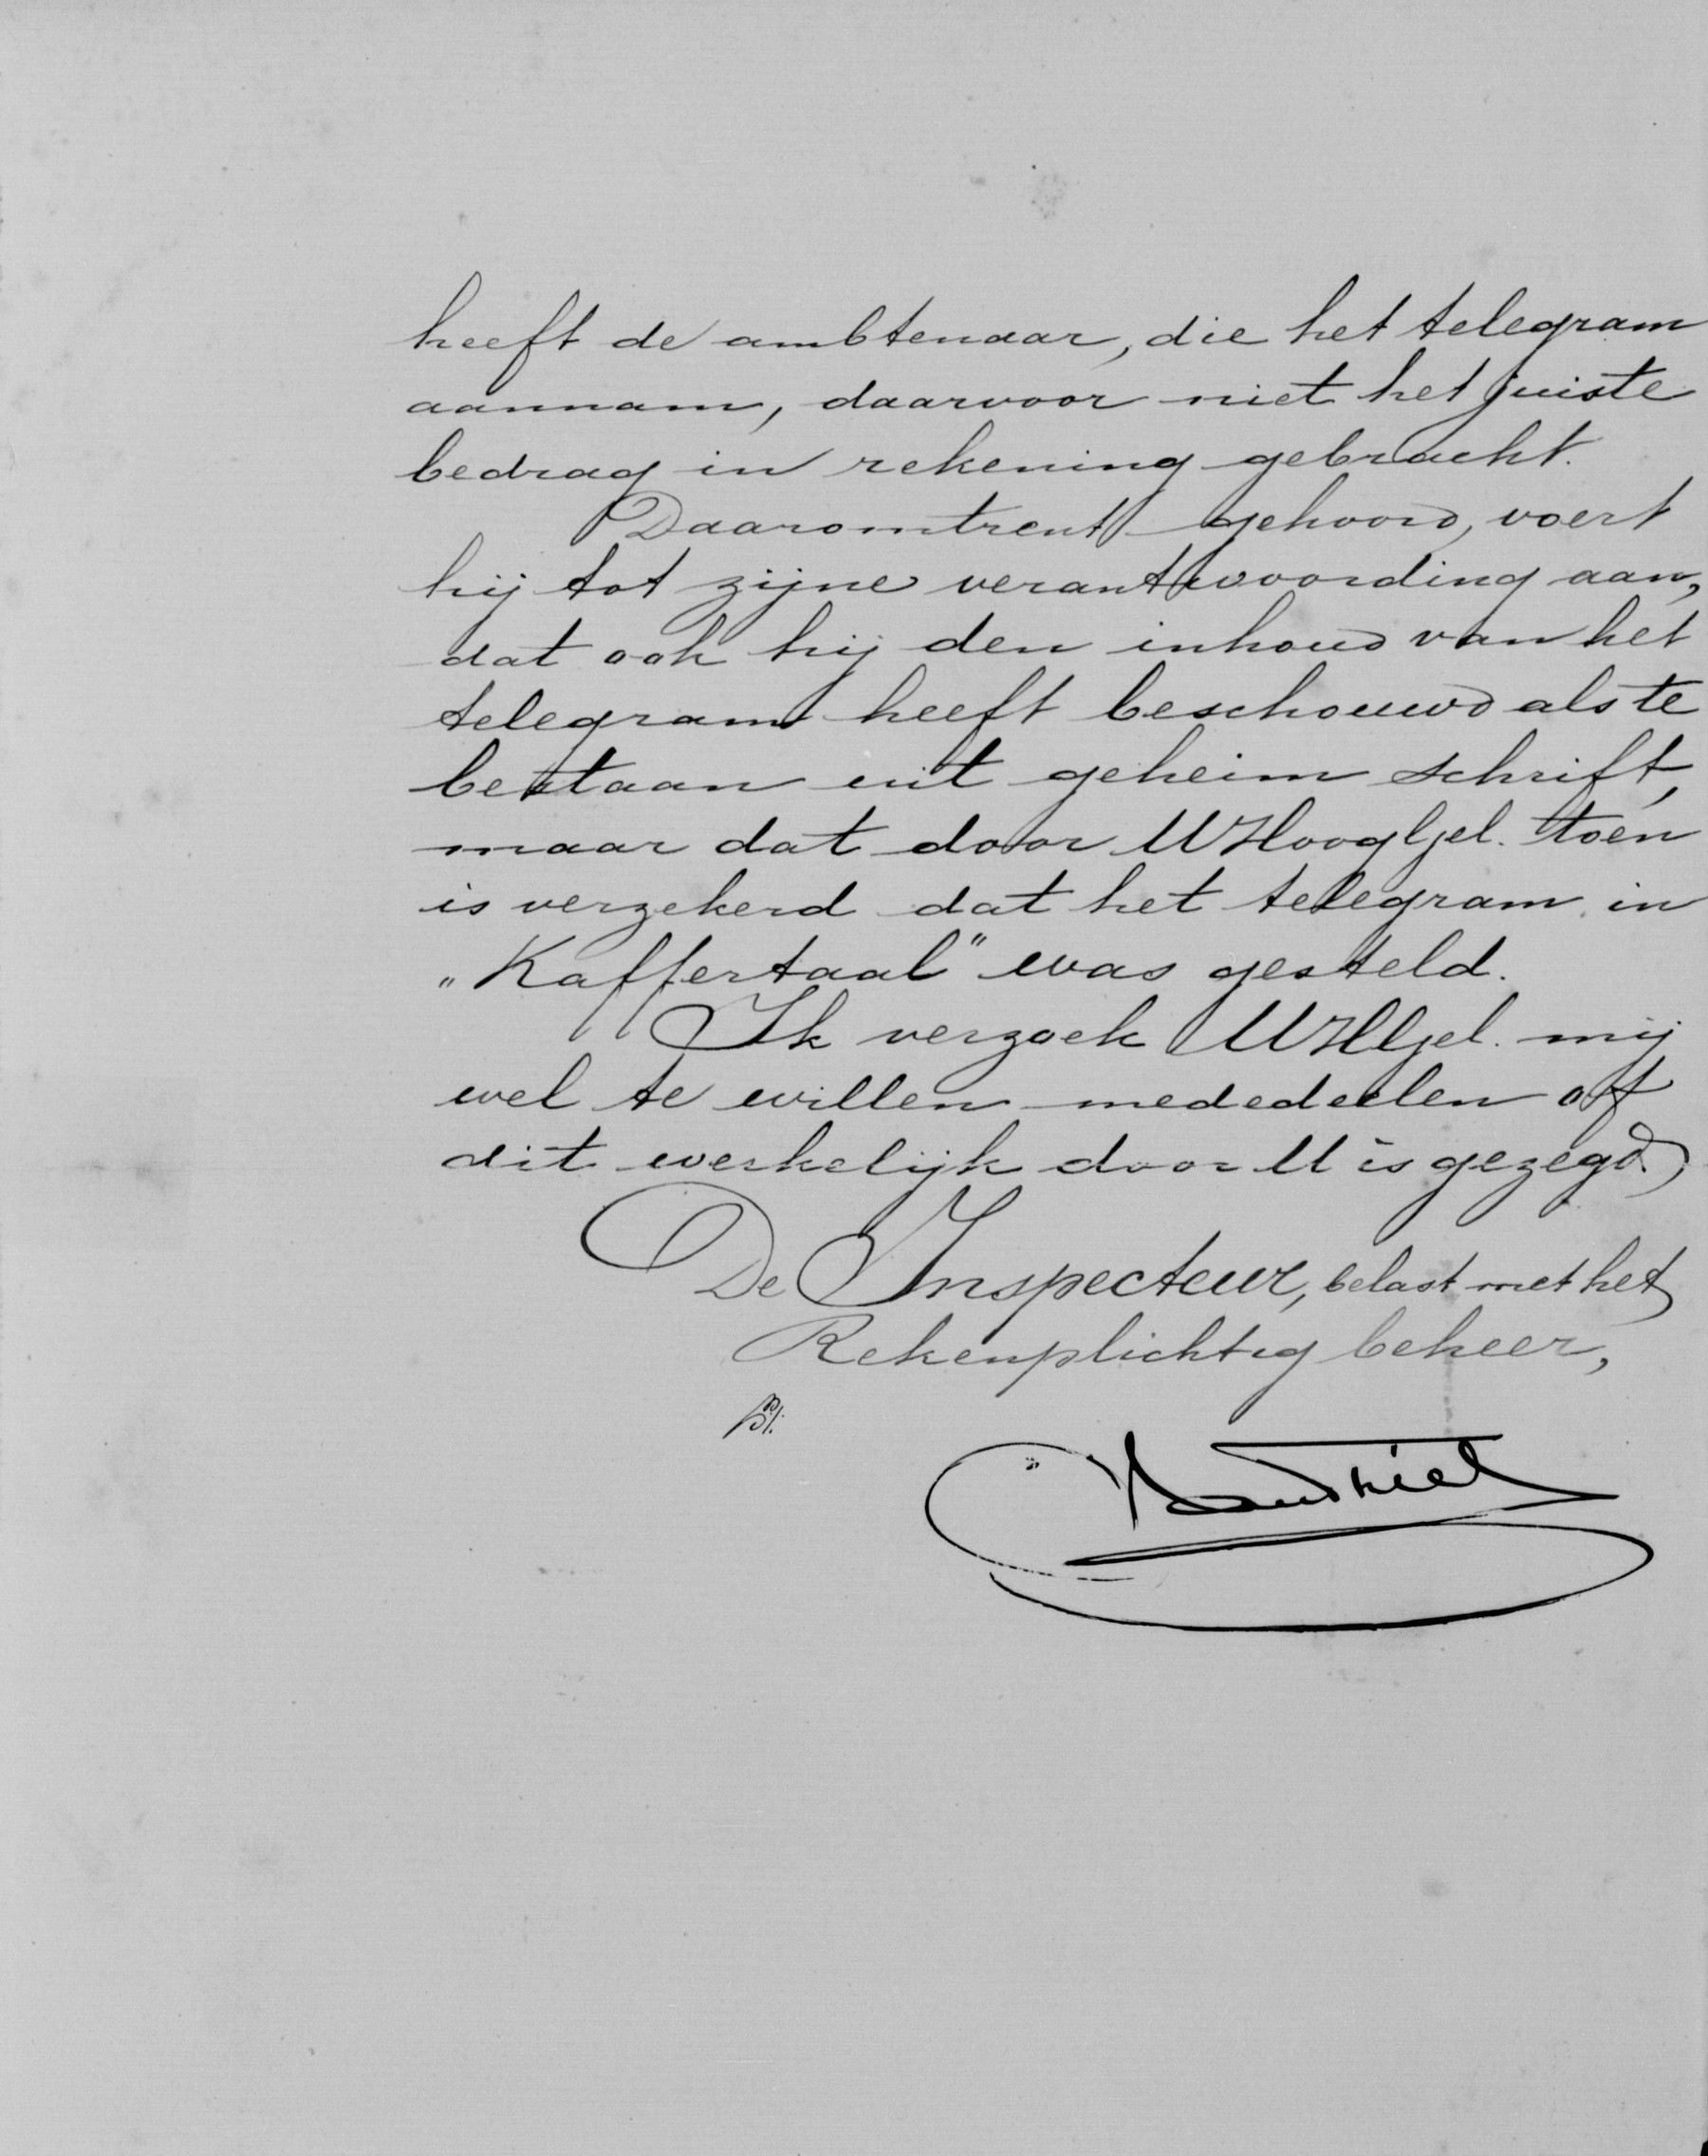 heeft de ambtenaar, die het telegram
aannam, daarvoor niet het juiste
bedrag in rekening gebracht.
Daaromtrent gehoord, voert
hij tot zijne verantwoording aan,
dat ook hij den inhoud van het
telegram heeft beschouwd als te
bestaan uit geheim schrift,
maar dat door UHoogEJel. toen
is verzekerd dat het telegram in
„Kaffertaal" was gesteld.
Ik verzoek UHEJel. mij
wel te willen mededeelen of
dit werkelijk door U is gezegd.
De Inspecteur, belast met het
Rekenplichtig beheer,